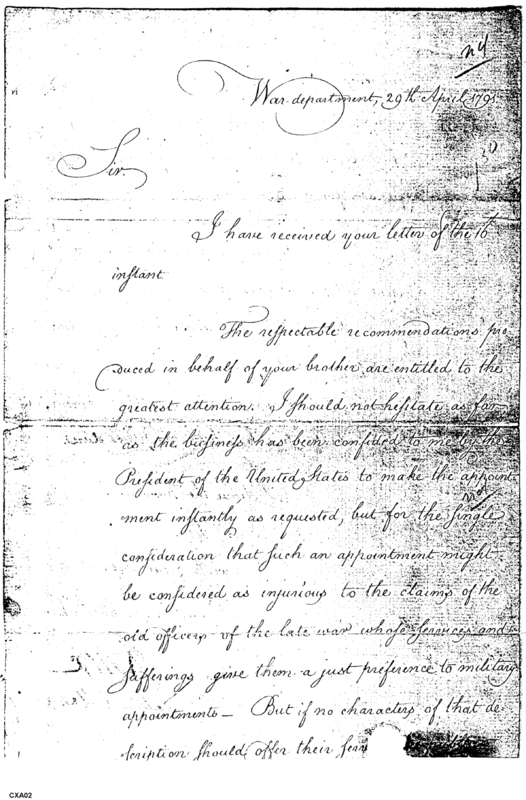 War department, 29th April, 179
Sir.
I have received your letter of the 16th
instant
The respectable recommendations pro
duced in behalf of your brother are entitled to the
greatest attention. I should not hesitate as far
as the business has been confided to me by the
President of the United States to make the appoint
ment instantly as requested, but for the single
consideration that such an appointment might
be considered as injurious to the claims of the
old officers of the late war whose services and
sufferings give them a just preference to military
appointments — But if no characters of that de
scription should offer their
CXA02